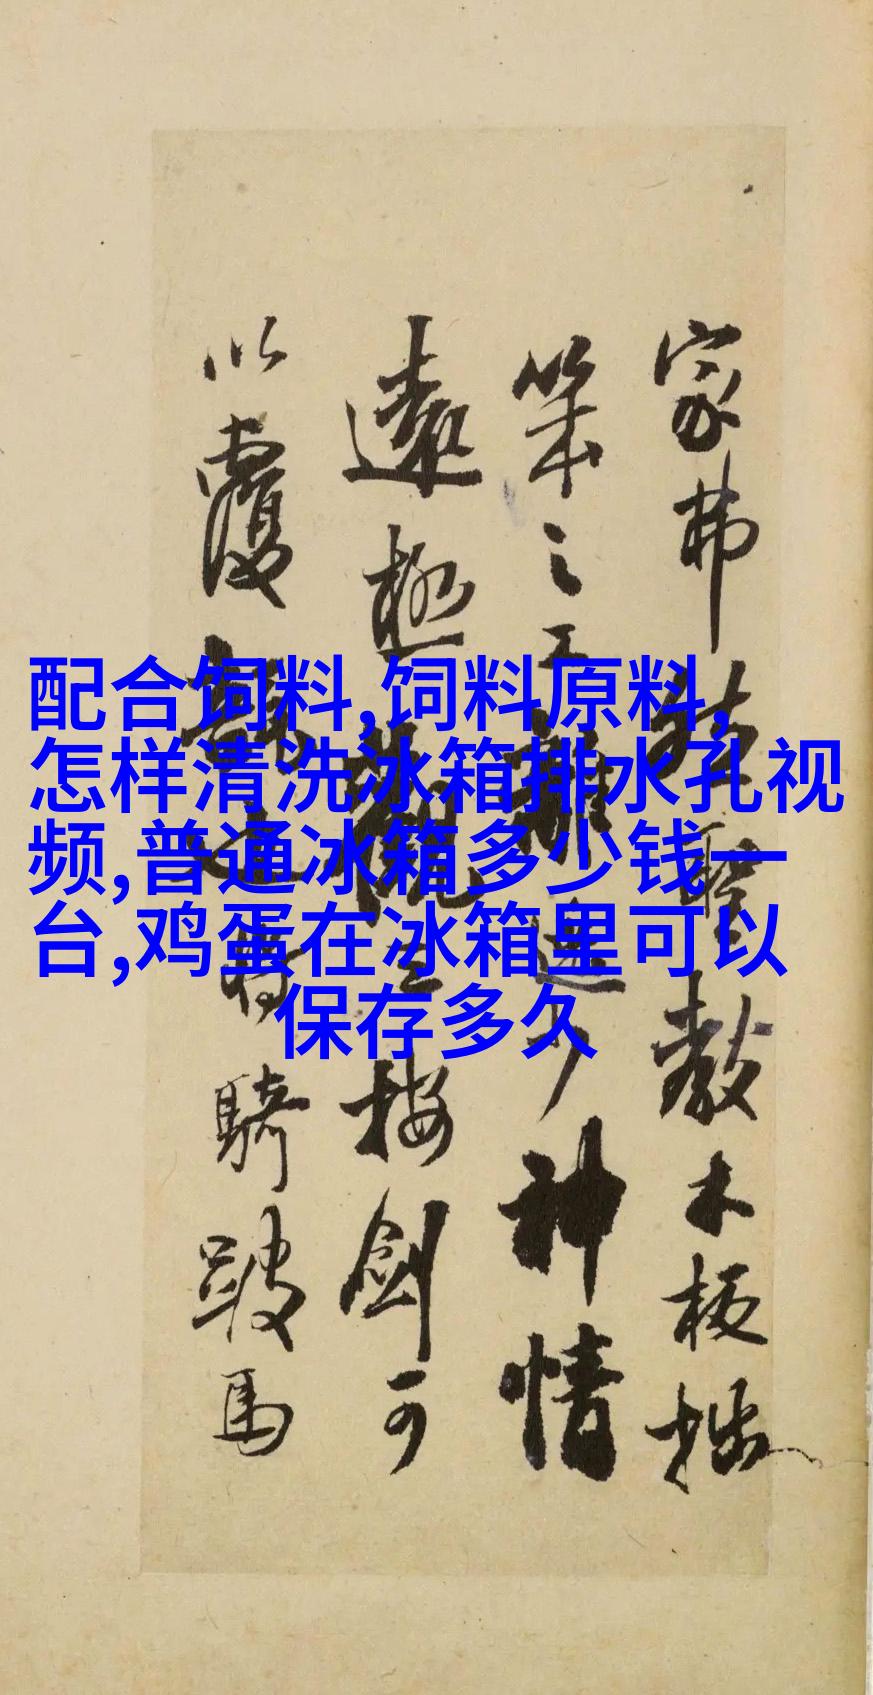 配合饲料,饲料原料,
怎样清洗冰箱排水孔视
频,普通冰箱多少钱一
台,鸡蛋在冰箱里可以
保存多久
家弗聖教木板拙
筆之工雖少神情
遠極觀按劍可
以覆騎跛馬